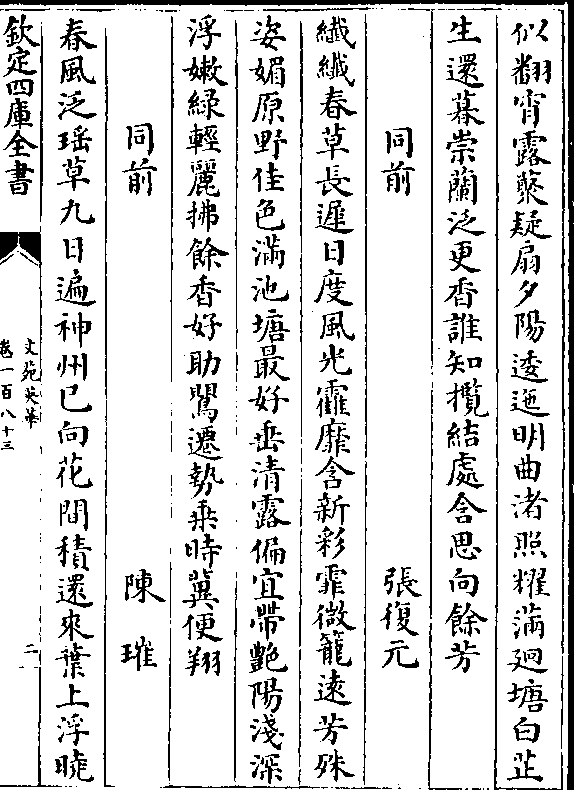 似翻宵露藂疑扇夕陽逶迤明曲渚照耀滿廻塘白芷
生還暮崇蘭泛更香誰知攬結處含思向餘芳
同前 張復元
纎纎春草長遲日度風光靃靡含新彩霏微籠遠芳殊
姿媚原野佳色滿池塘最好垂清露偏宜帶艶陽淺深
浮嫩綠輕麗拂餘香好助鸎遷勢乗時冀便翔
同前 陳璀
春風泛瑶草九日遍神州已向花間積還來葉上浮曉
欽定四庫全書
文苑英華
卷一百八十三
二